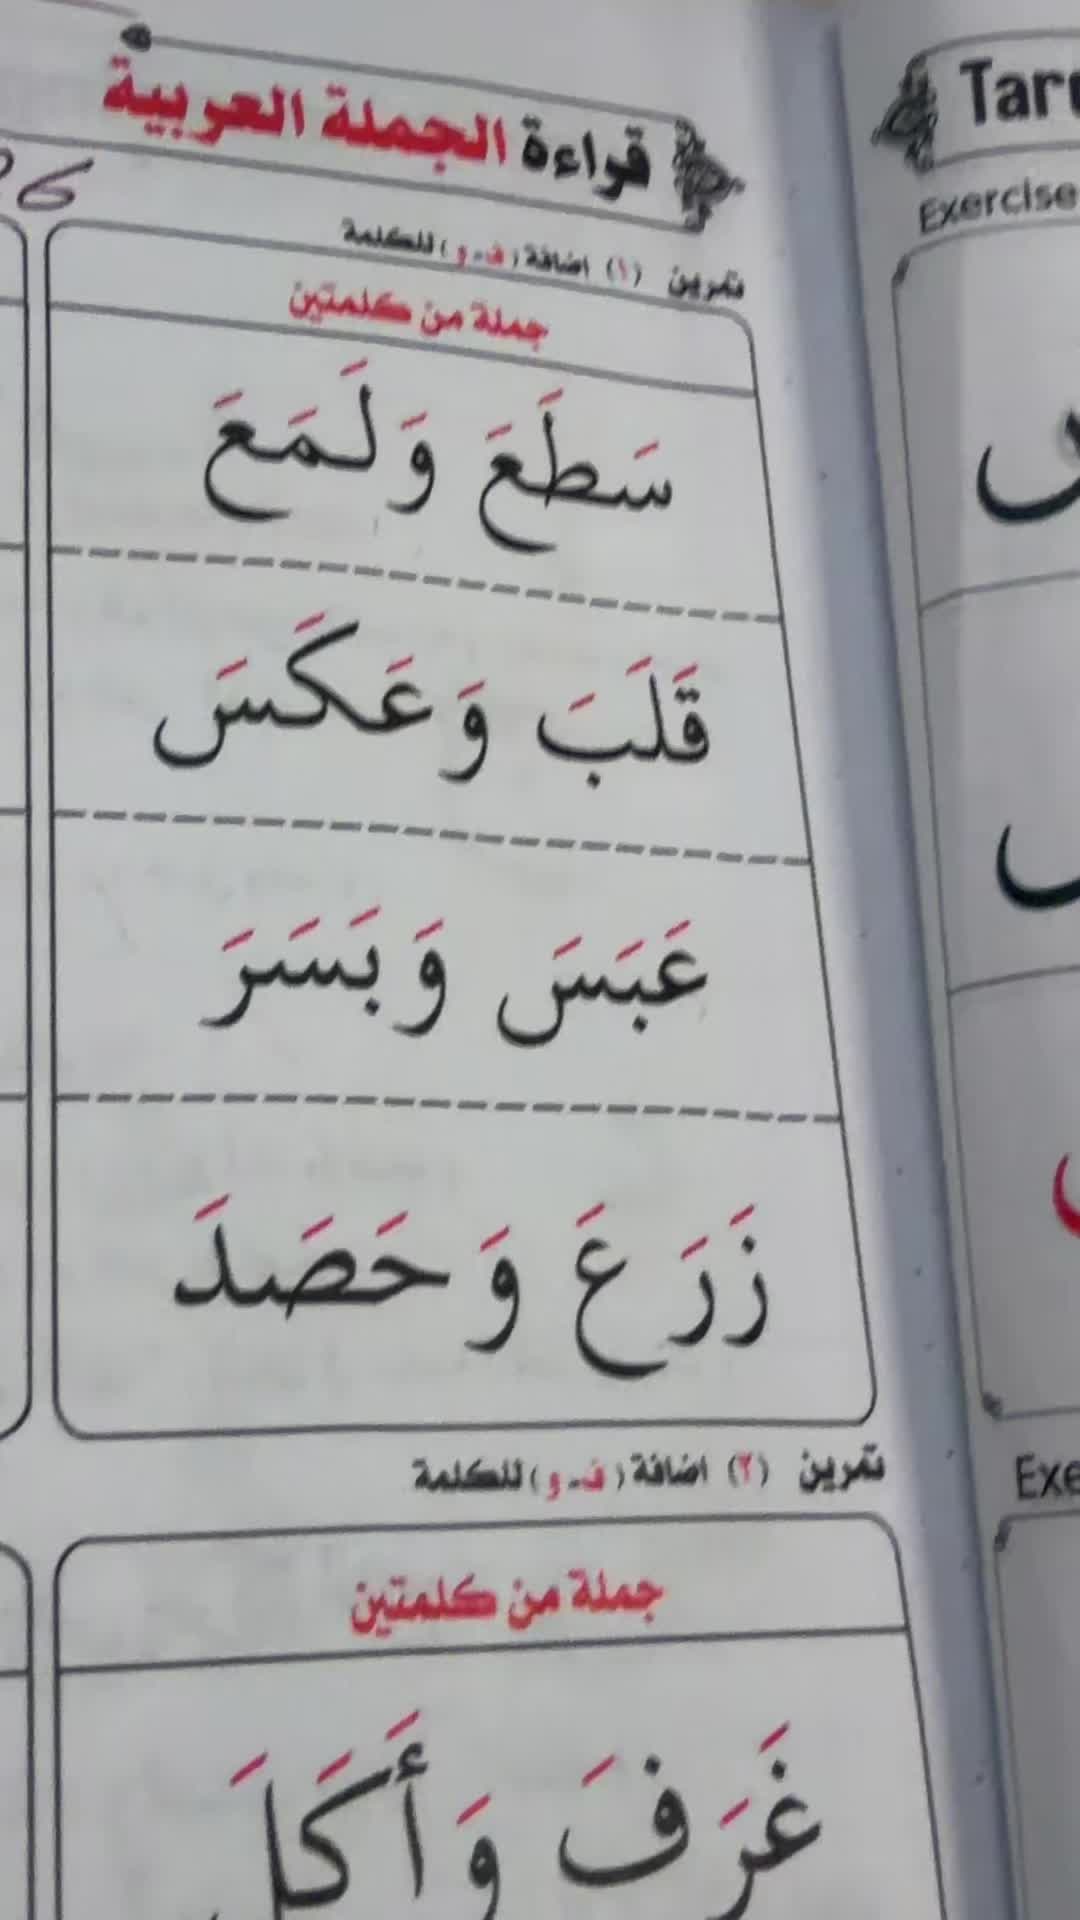 قراءة الجملة العربية
تمرين (١) اضافة (ف-و) للكلمة
جملة من كلمتين
سَطَعَ وَلَمَعَ
قَلَبَ وَعَكَسَ
عَبَسَ وَبَسَرَ
زَرَعَ وَحَصَدَ
تمرين (٢) اضافة (ف-و) للكلمة
جملة من كلمتين
غَرَفَ وَأَكَلَ
Exercise